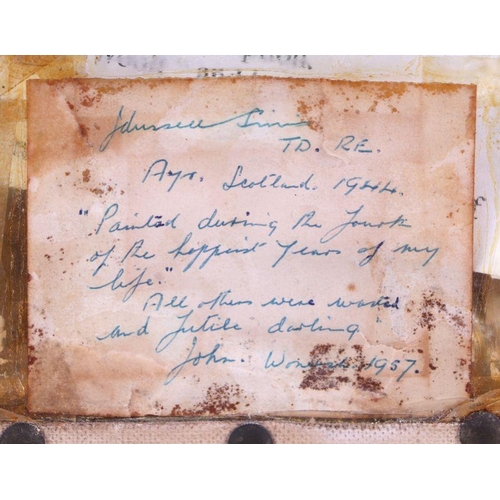 TD. RE.
Ayr. Scotland. 1944.
"Painted during the fourth
of the happiest years of my
life."
All others were wasted
and futile darling
John. 1957.